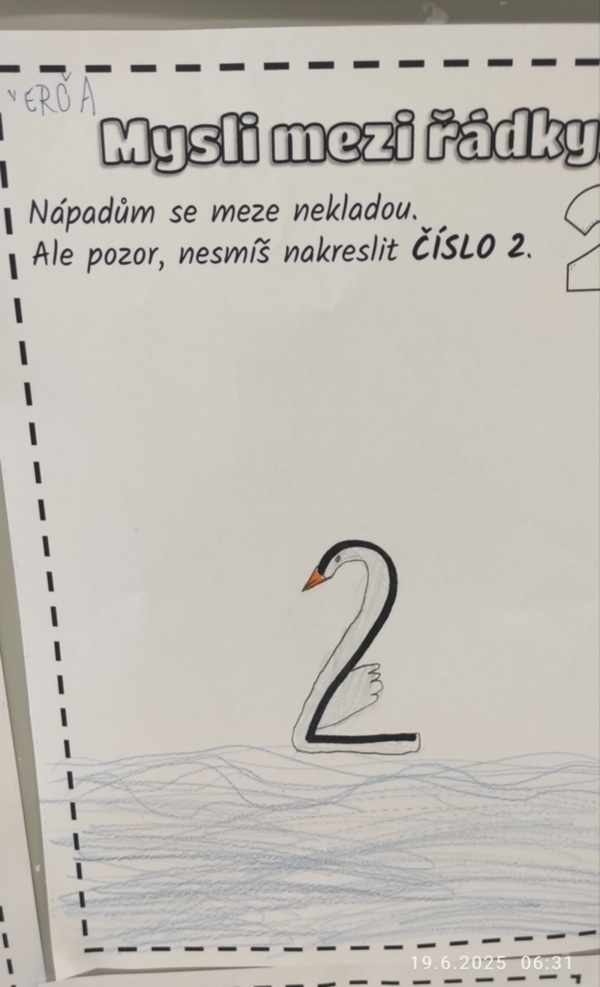 VERČA
Mysli mezi řádky
Nápadům se meze nekladou.
Ale pozor, nesmíš nakreslit ČÍSLO 2.
2
2
19.6.2025 06:31